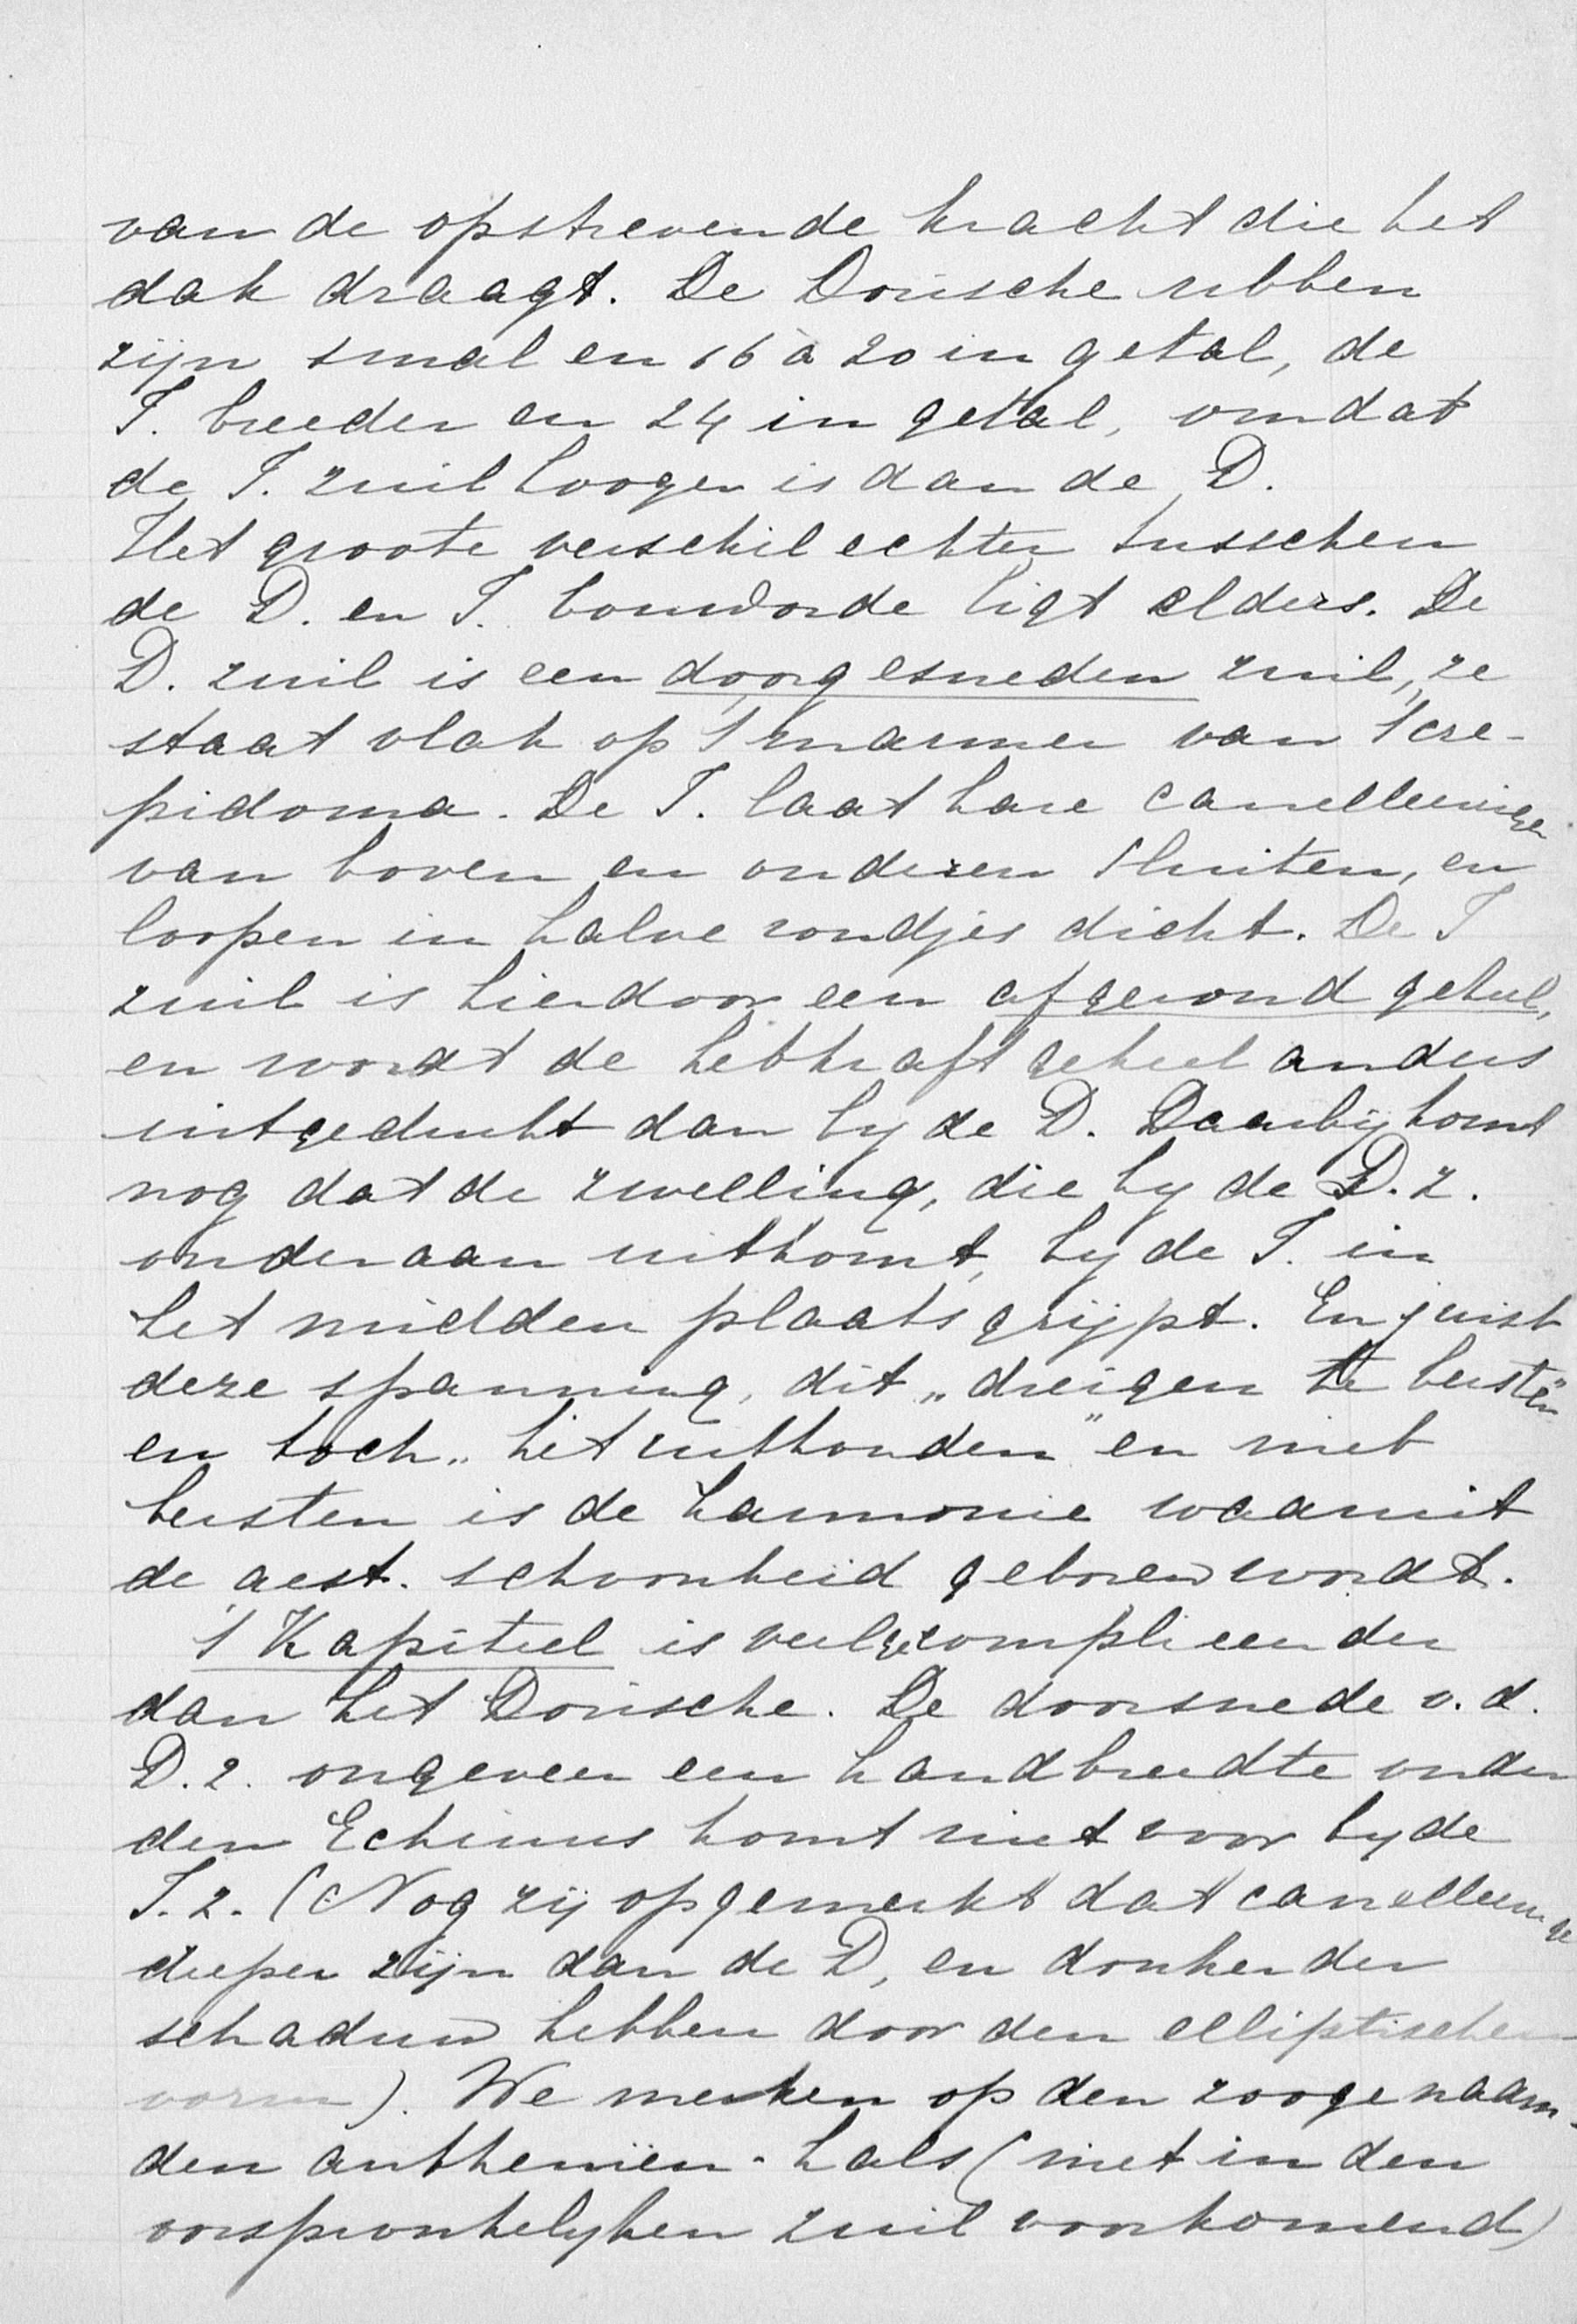 van de opstrevende kracht die het
dak draagt. De Dorische ribben
zijn smal en 16 à 20 in getal, de
I. breeder en 24 in getal, omdat
de I. zuil hooger is dan de D.
Het groote verschil echter tusschen
de D. en I. bouworde ligt elders. De
D. zuil is een doorgesneden zuil, ze
staat vlak op 't marmer van 't cre-
pidoma. De I. laat hare canelleeringen
van boven en onderen sluiten, en
loopen in halve rondjes dicht. De I
zuil is hierdoor een afgerond geheel,
en wordt de hebkraft geheel anders
uitgedrukt dan by de D. Daarbij komt
nog dat de zwelling, die by de D. z.
onderaan uitkomt, by de I. in
het midden plaats grijpt. En juist
deze spanning, dit „dreigen te bersten"
en toch „het uithouden" en niet
bersten is de harmonie waaruit
de aest. schoonheid geboren wordt.
't Kapiteel is veel gecompliceerder
dan het Dorische. De doorsnede v. d.
D. z. ongeveer een handbreedte onder
den Echinus komt niet voor by de
I. z. (Nog zij opgemerkt dat canelleeringen
dieper zijn dan de D, en donkerder
schaduw hebben door den elliptischen
vorm). We merken op den zoogenaam-
den anthemiën-hals (niet in den
oorspronkelyken zuil voorkomend)